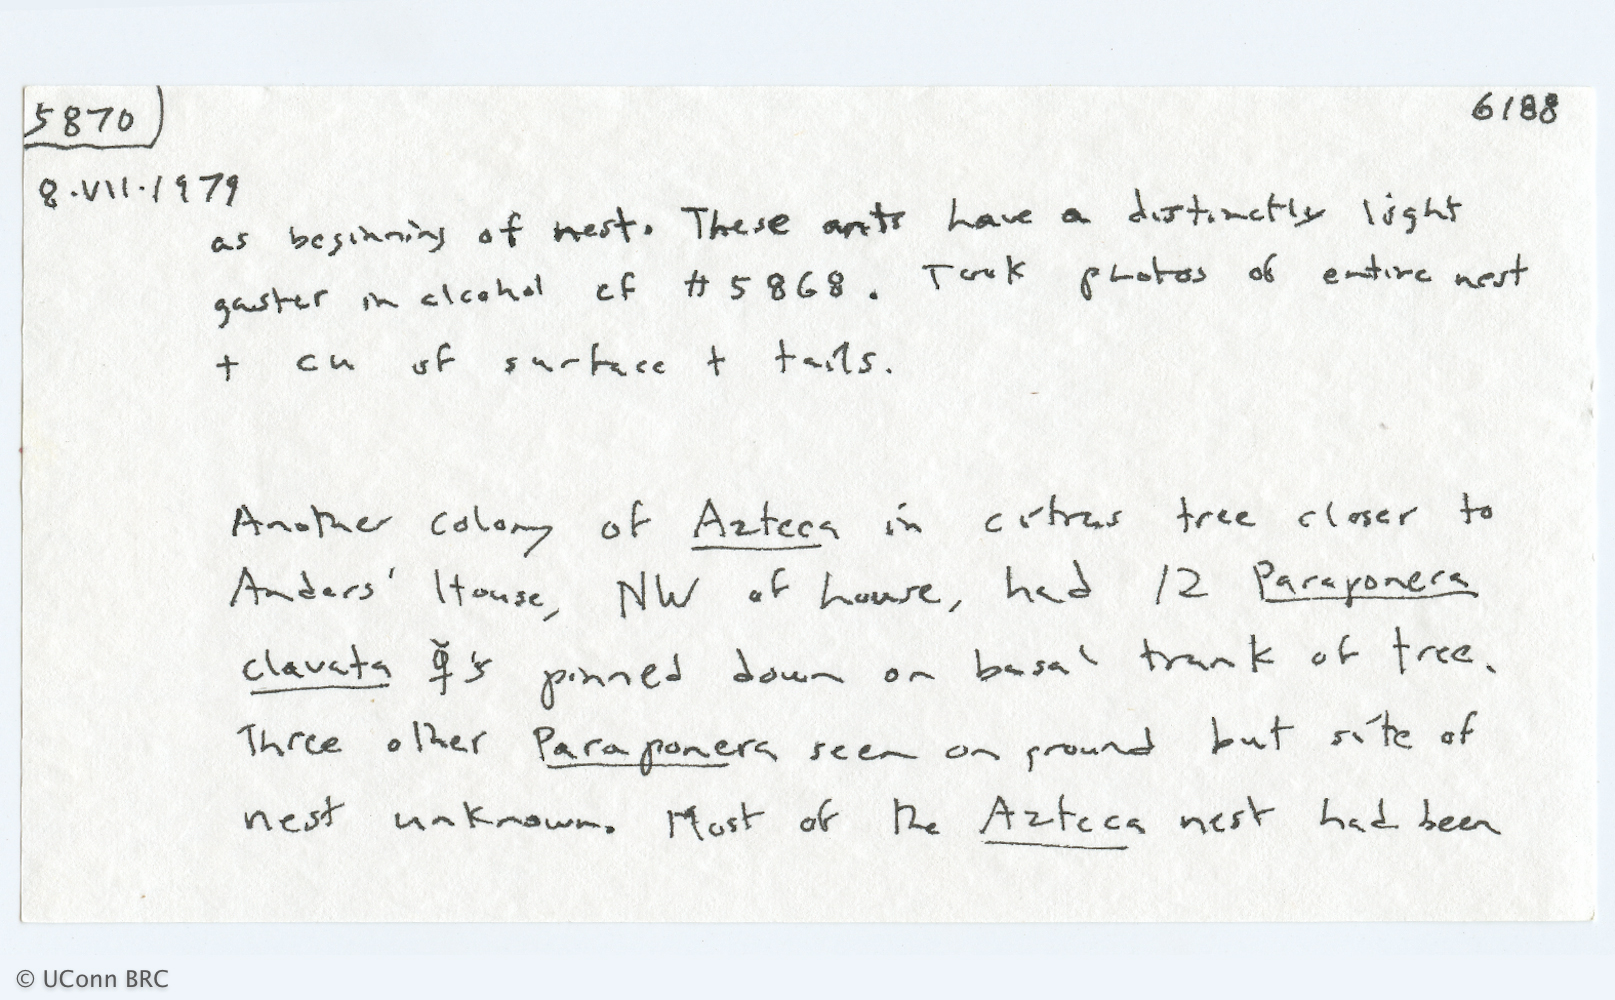 5870
6188
8.VII.1979
as beginning of nest. These ants have a distinctly light
gaster in alcohol cf #5868. Took photos of entire nest
+ cu of surface + tails.
Another colony of Azteca in citrus tree closer to
Anders' House, NW of house, had 12 Paraponera
clavata ☿'s pinned down on basal trunk of tree.
Three other Paraponera seen on ground but site of
nest unknown. Most of the Azteca nest had been
© UConn BRC